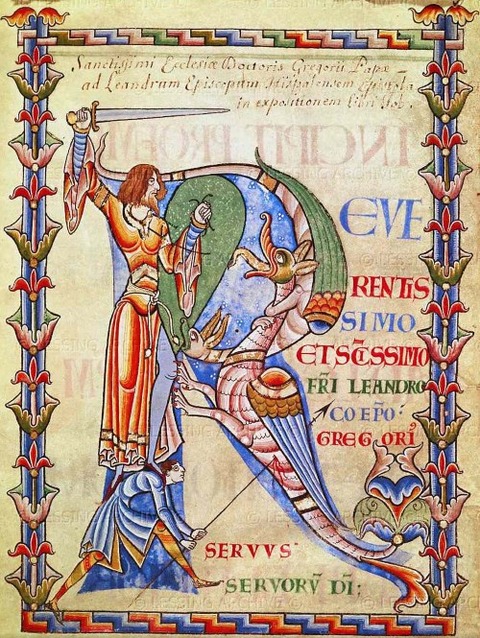 Sanctissimi Ecclesiæ Doctoris Gregorii Papæ
ad Leandrum Episcopum Hispalensem Epistola
in expositionem libri Iob.
REVE
RENTIS
SIMO
ET SC̄ISSIMO
FR̄I LEANDRO
COEP̄O:
GREGORI'
SERVVS
SERVORV̄ DI;